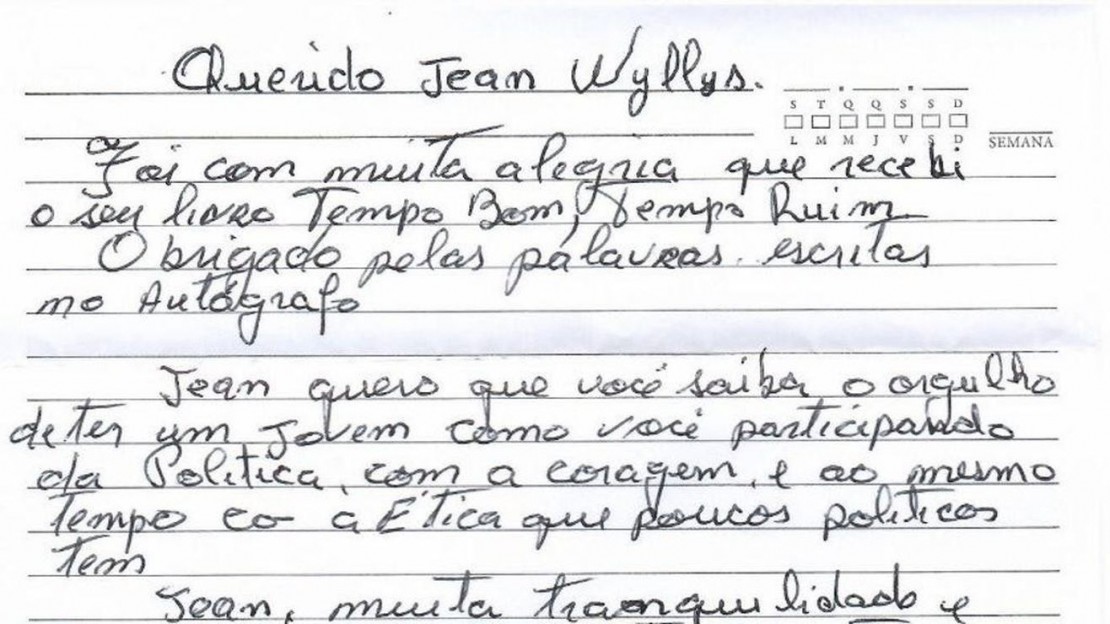 Querido Jean Wyllys.
S T Q Q S S D
L M M J V S D
SEMANA
Foi com muita alegria que recebi
o seu livro Tempo Bom, Tempo Ruim
Obrigado pelas palavras escritas
no Autógrafo
Jean quero que você saiba o orgulho
de ter um Jovem como você participando
da Política, com a coragem, e ao mesmo
tempo co a Ética que poucos politicos
tem
Jean, muita tranquilidade e